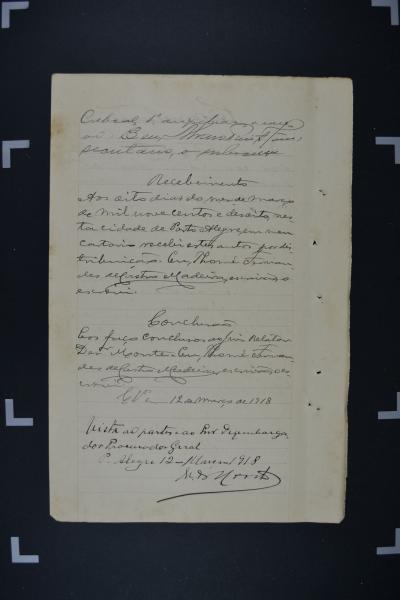 Cabral, 1º
secretario, o subscrevi
Recebimento
Aos oito dias do mez de Março
de mil nove centos e desoito, nes
ta cidade de Porto Alegre, em meu
cartorio recebi estes autos por dis
tribuição. Eu, Thomé Fernan
des de Castro Madeira, escrivão o
escrevi.
Conclusão
Eos faço conclusos ao Snr. Relator
Des.or Monte. Eu, Thomé Fernan
des de Castro Madeira, escrivão, o es-
crevi.
12 de Março de 1918
Vista as partes e ao Exmo Dezembarga
dor Procurador Geral
P. Alegre 12 - Março 1918
M. do Monte